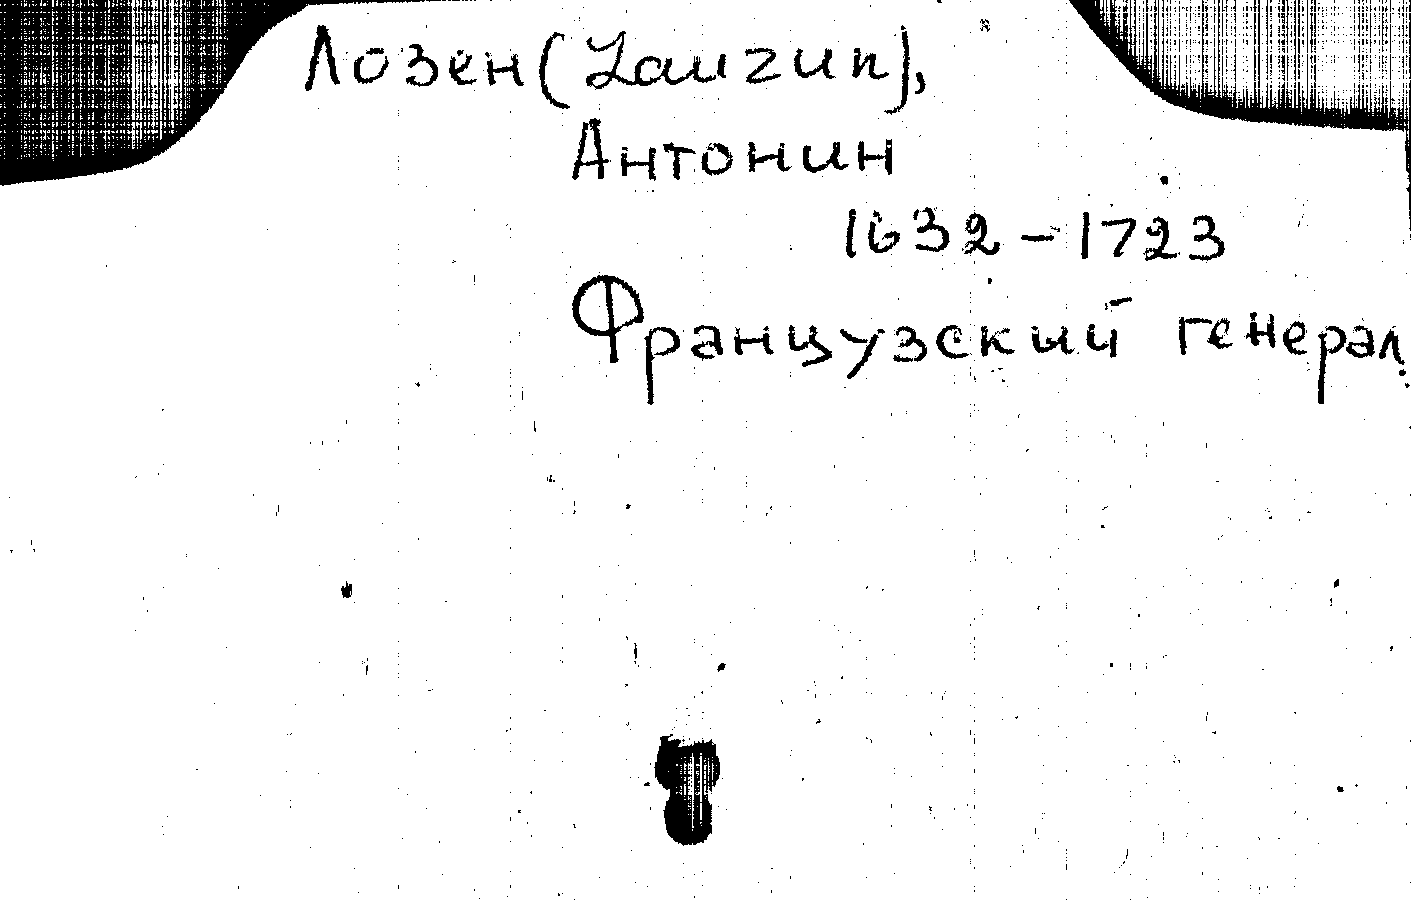 Лозен (Lauzun),
Антонин
1632 – 1723
Французский генерал